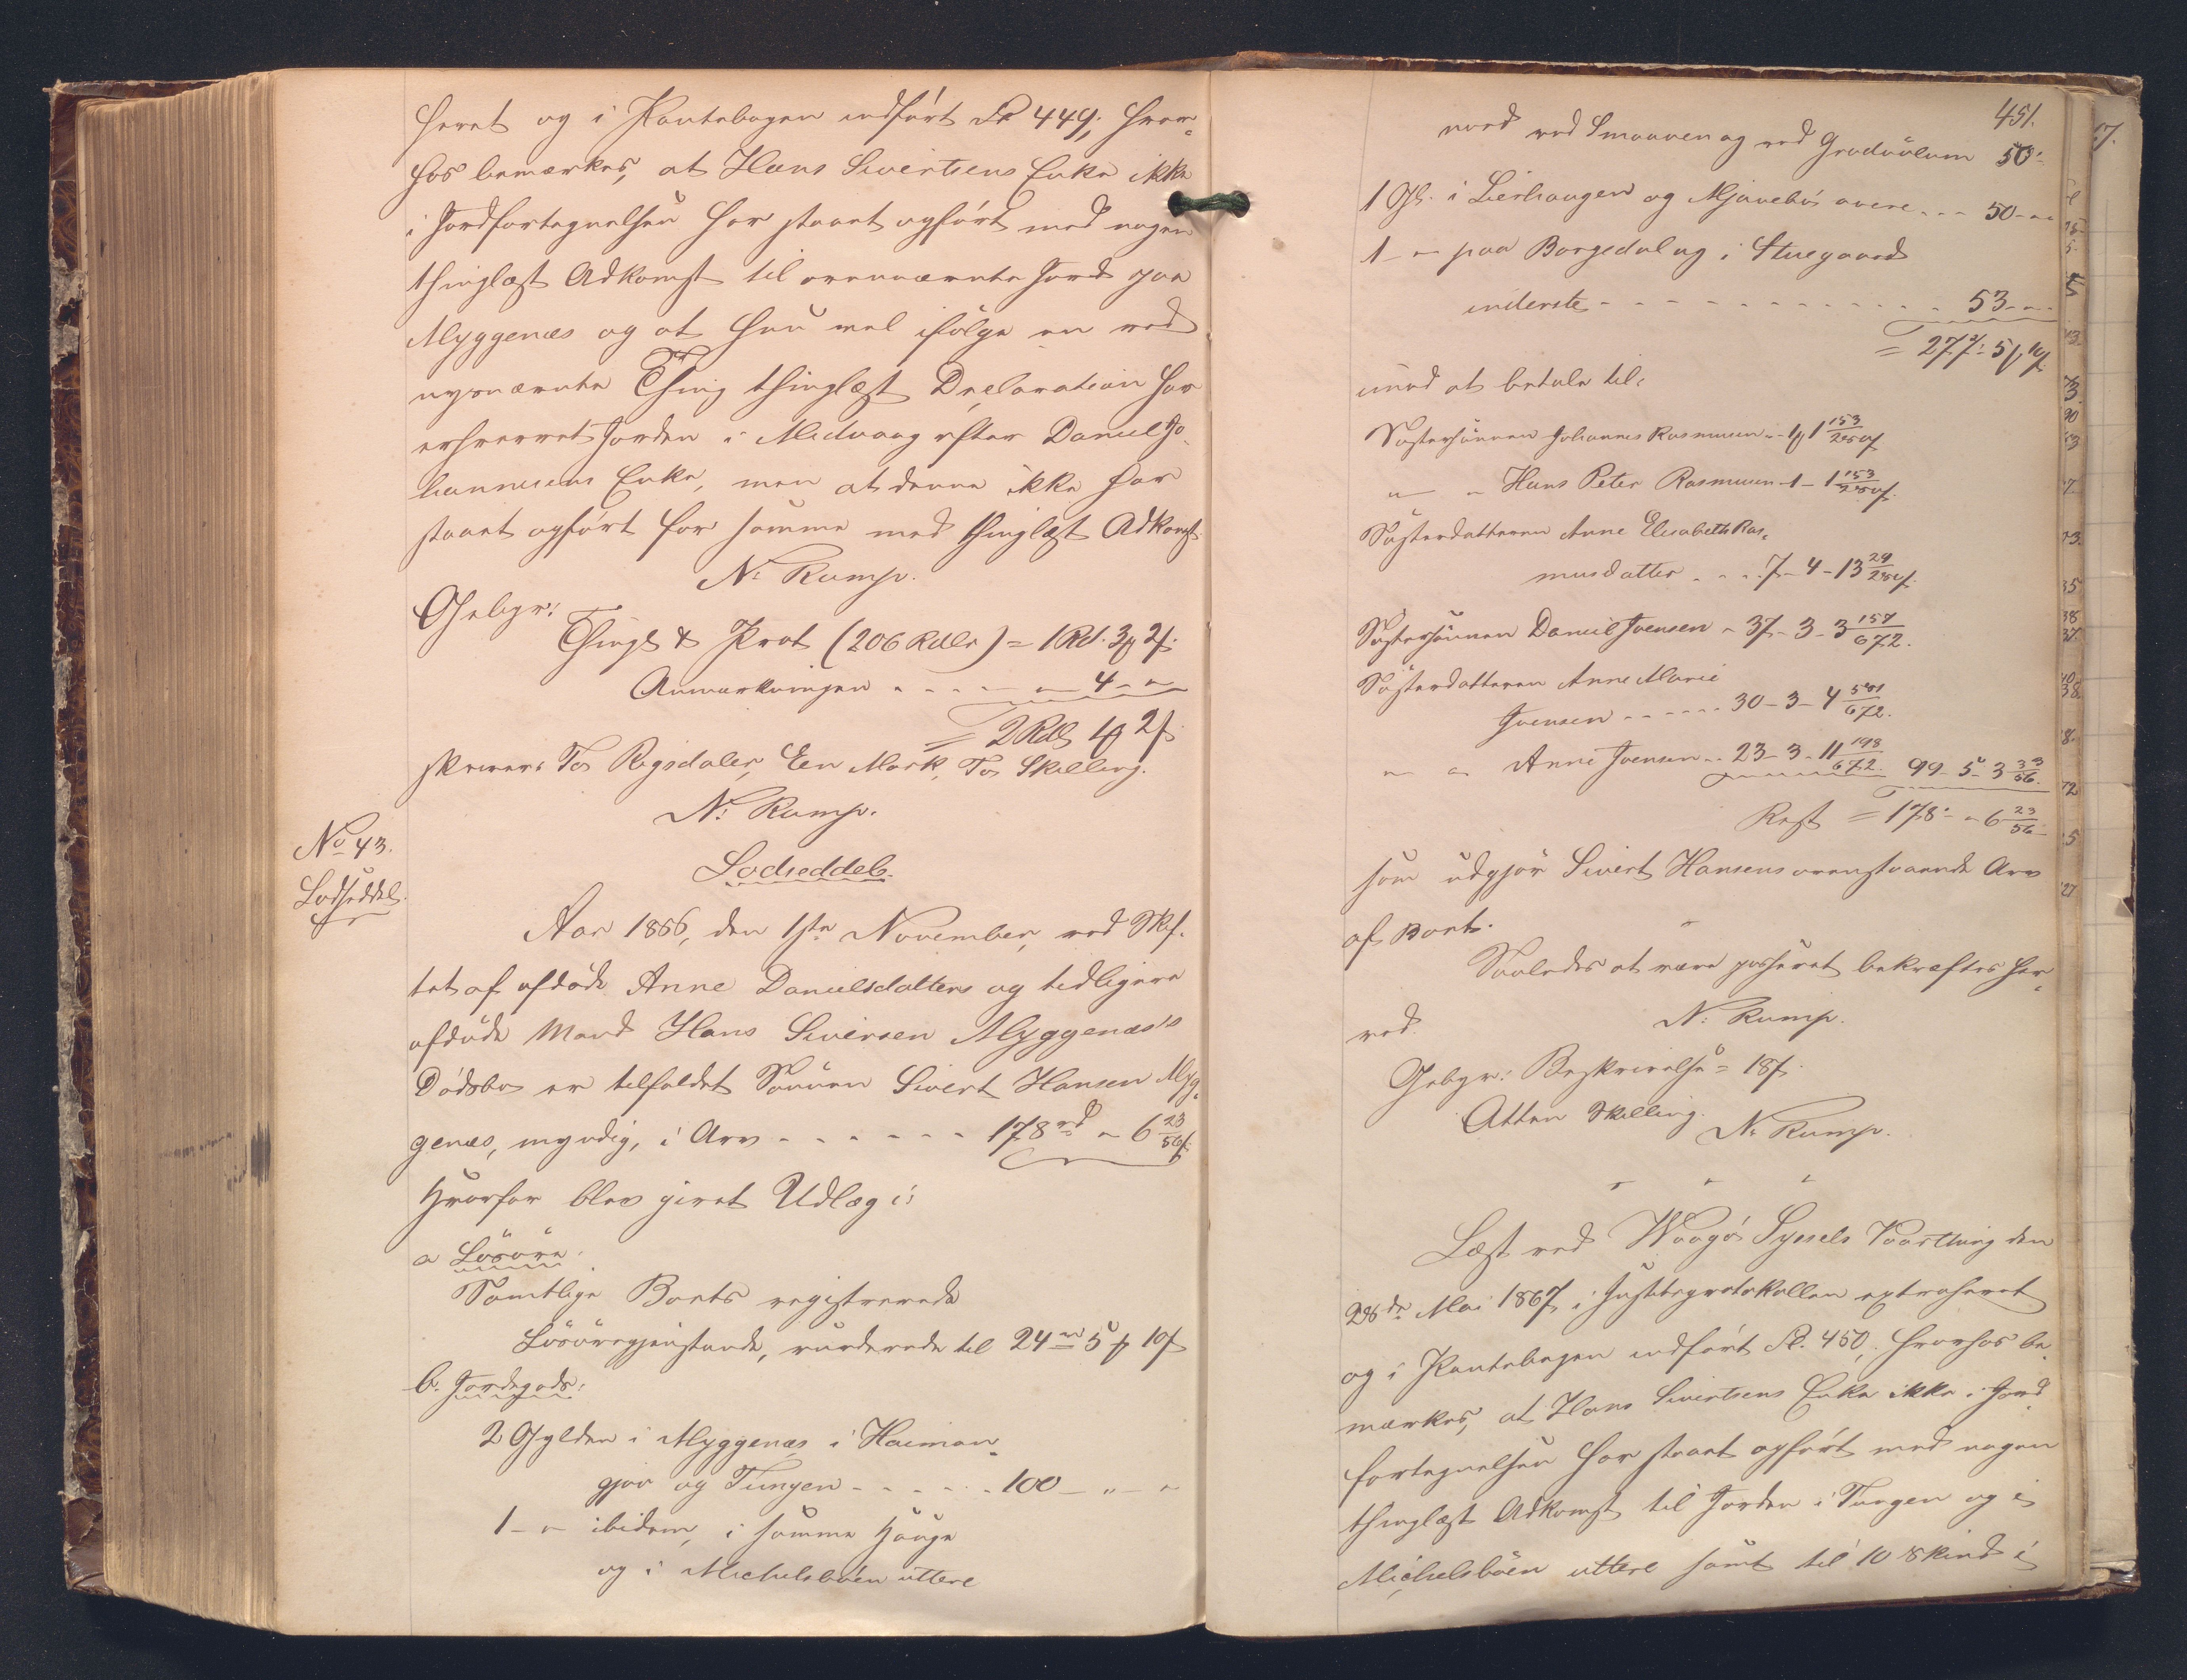 heret og i Pantebogen indført Fo 449; hvor-
hos bemærkes, at Hans Sivertsens Enke ikke
i Jordfortegnelsen har staaet opført med nogen
thinglæst Adkomst til ovennævnte Jord paa
Myggenæs og at hun vel ifølge en ved
nysnævnte Thing thinglæst Declaration har
erhvervet Jorden i Midvaag efter Daniel Jo-
hannesens Enke, men at denne ikke har
staaet opført for samme med thinglæst Adkomst.
N: Rump.
Gebyr:
Thingl & Prot (206 Rdlr) = 1 Rd. 3 ₻ 2 ß.
Anmærkningen . . . . — 4 - "
= 2 Rdl 1 ₻ 2 ß
skriver: To Rigsdaler, Een Mark, To Skilling.
N: Rump.
No 43.
Lodseddel.
Lodseddel.
Aar 1866, den 1ste November, ved Skif-
tet af afdøde Anne Danielsdatters og tidligere
afdøde Mand Hans Siversen Myggenæs's
Dødsbo er tilfaldet Sønnen Sivert Hansen Myg-
genæs, myndig, i Arv - - - - - - 178 rd " 6 23/56 ß.
hvorfor blev givet Udlæg i:
a Løsøre.
Samtlige Boets registrerede
Løsøregjenstande, vurderede til 24 rd 5 ₻ 10 ß
b. Jordegods:
2 Gylden i Myggenæs i Heiman-
gjov og Tungen - - - - - - 100 - " - "
1 - " ibidem, i samme Hauge
og i Michelsbøen uttere
451.
nord ved Smaaven og ved Grudvølum 50 -
1 Gl. i Lierhaugen og Mjavebøs overe - - - 50 - "
1 - " paa Borgedal og i Stuegaard
inderste - - - - - - - - - - - - 53 - " -
= 277 - 5 ₻ 10 ß
imod at betale til:
Søstersønnen Johannes Rasmussen - 1 ₻ 1 153/280 ß
" - " Hans Peter Rasmussen - 1 - 1 153/280 ß.
Søsterdatteren Anne Elisabeth Ras-
musdatter . . . 7 - 4 - 13 29/280 ß.
Søstersønnen Daniel Joensen - 37 - 3 - 3 157/672.
Søsterdatteren Anne Marie
Joensen - - - - - - 30 - 3 - 4 581/672.
" " Anne Joensen - 23 - 3 - 11 198/672. 99 - 5 - 3 33/56.
Rest = 178 - " 6 23/56
som udgjør Sivert Hansens ovenstaaende Arv
af Boet.
Saaledes at være passeret bekræftes her-
ved.
N: Rump.
Gebyr: Beskrivelse = 18 ß.
Atten Skilling. N: Rump.
Læst ved Waagø Syssels Vaarthing den
28de Mai 1867, i Justitsprotokollen extraheret
og i Pantebogen indført Fo. 450, hvorhos be-
mærkes, at Hans Sivertsens Enke ikke i Jord-
fortegnelsen har staaet opført med nogen
thinglæst Adkomst til Jorden i Tungen og i
Michelsbøen uttere samt til 10 Skind i